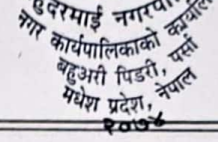 हुदरमाई नगरपा
नगर कार्यपालिकाको कार्याल
बहुअरी पिडरी, पर्सा
मधेश प्रदेश, नेपाल
२०७४